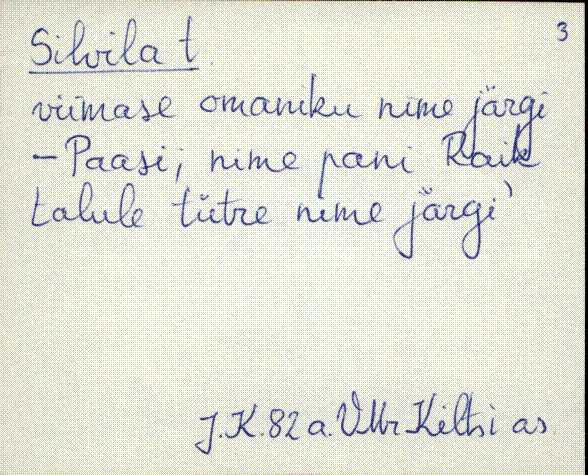 3
Silvila t.
viimase omaniku nime järgi
– Paasi; nime pani Raik
talule tütre nime järgi
J.K. 82 a. VMr Kiltsi as